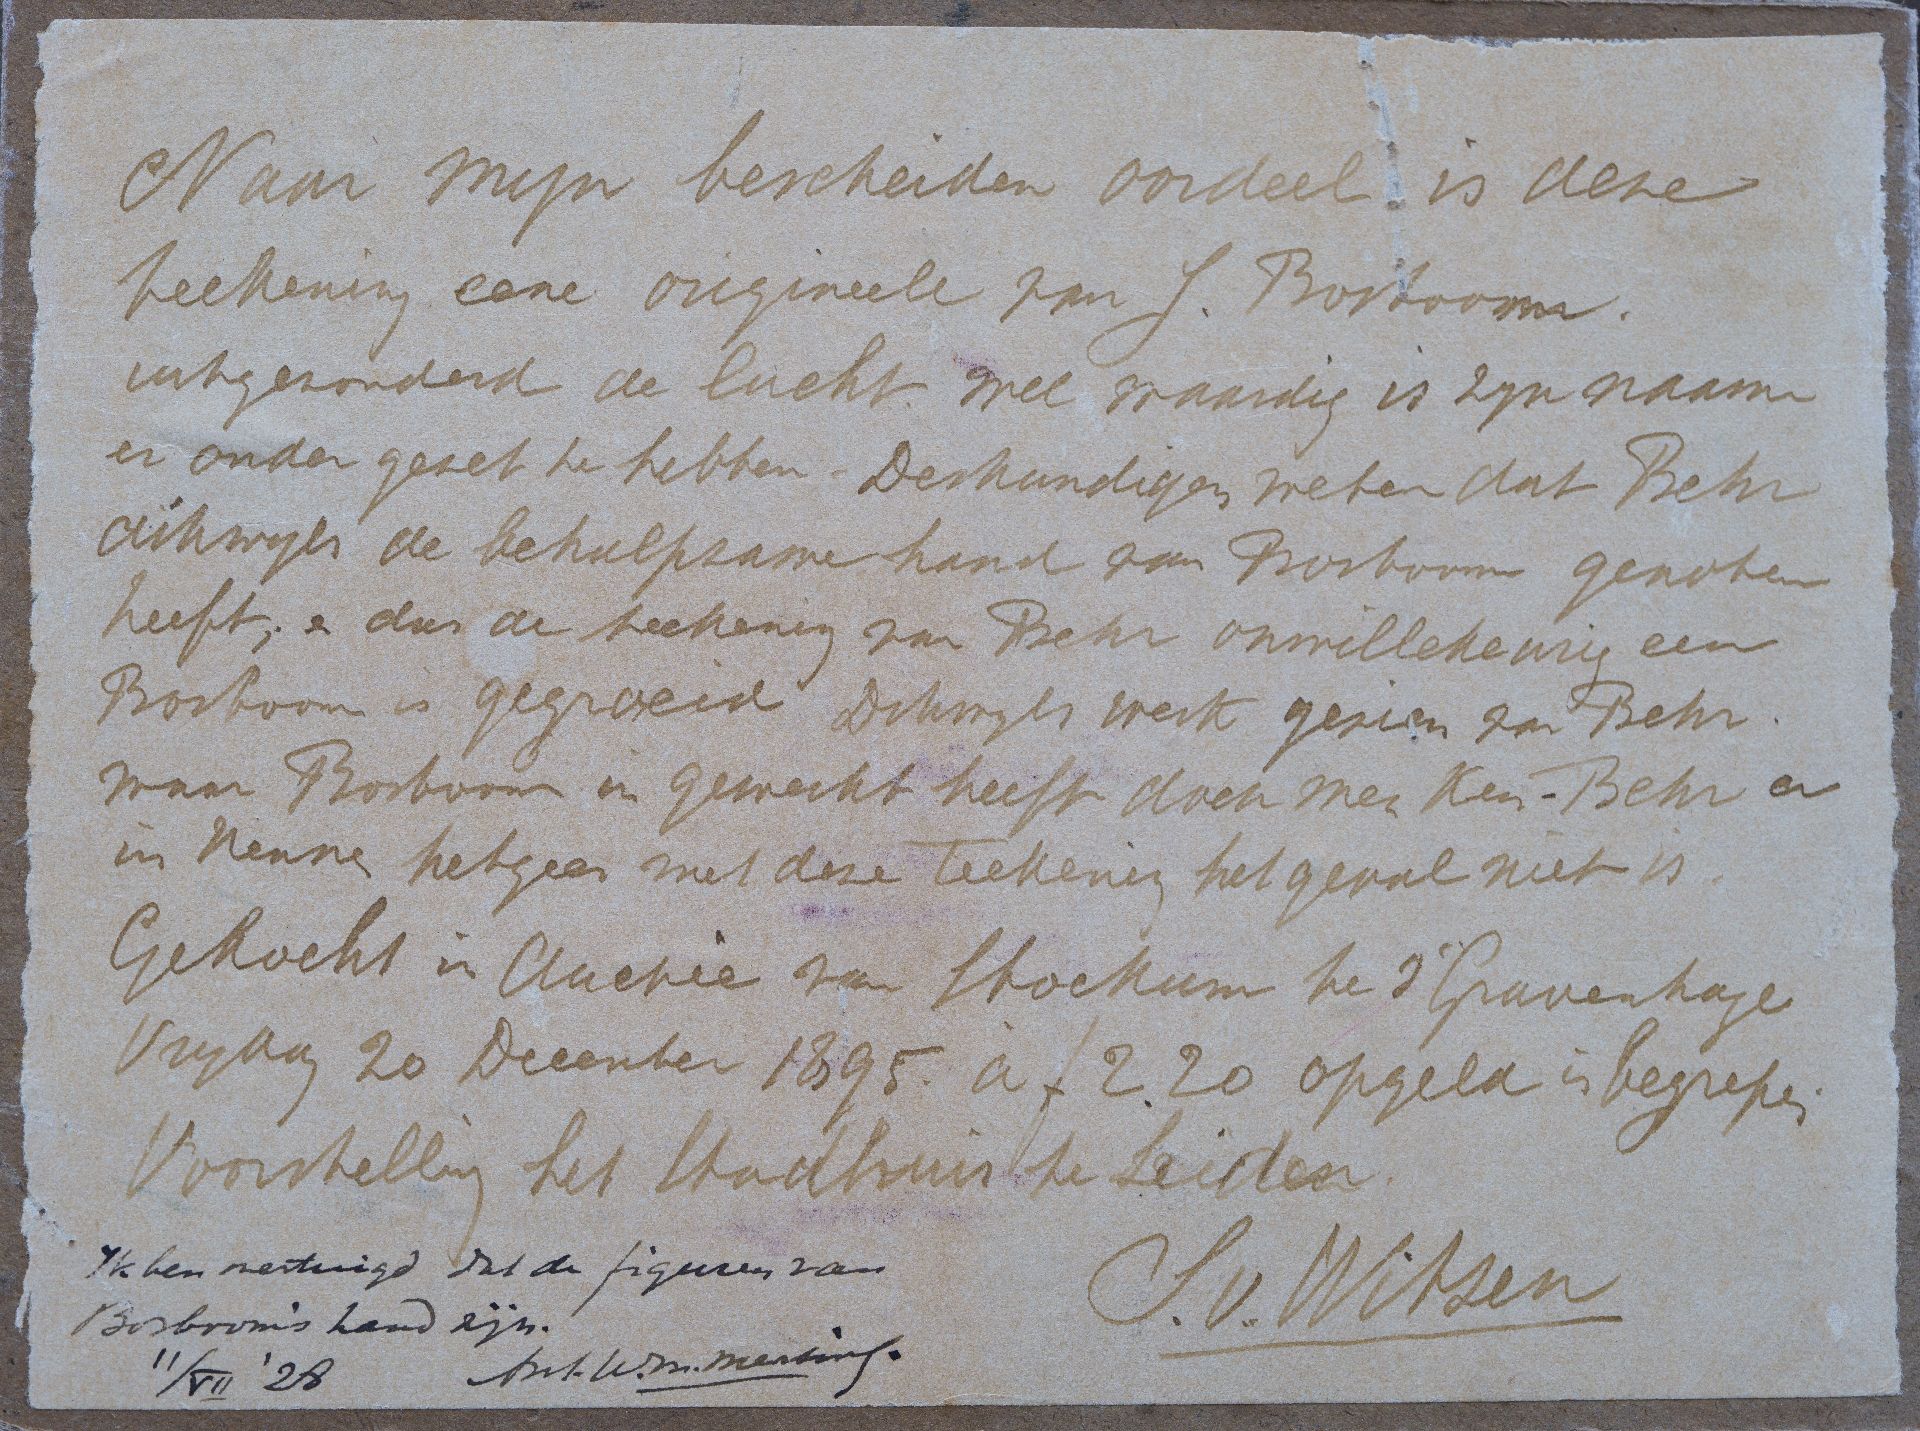 Naar mijn bescheiden oordeel is deze
teekening eene origineele van J. Bosboom.
uitgezonderd de lucht. wel waardig is zijn naam
er onder gezet te hebben - Deskundigen weten dat Behr
dikwyls de behulpzame hand van Bosboom genoten
heeft, e dus de teekening van Behr onwillekeurig een
Bosboom is gegroeid Dikwyls werk gezien van Behr.
waar Bosboom in gewerkt heeft doch men Ken - Behr er
in kennen hetgeen met deze Teekening het geval niet is.
Gekocht in Auctie van Stockum te 's Gravenhage
Vrydag 20 December 1895. à f 2.20 opgeld in begrepen.
Voorstelling het Stadhuis te Leiden.
S. v. Witsen
Ik ben overtuigd dat de figuren van
Bosboom's hand zijn.
11/VII '28 W.M. Mensing.